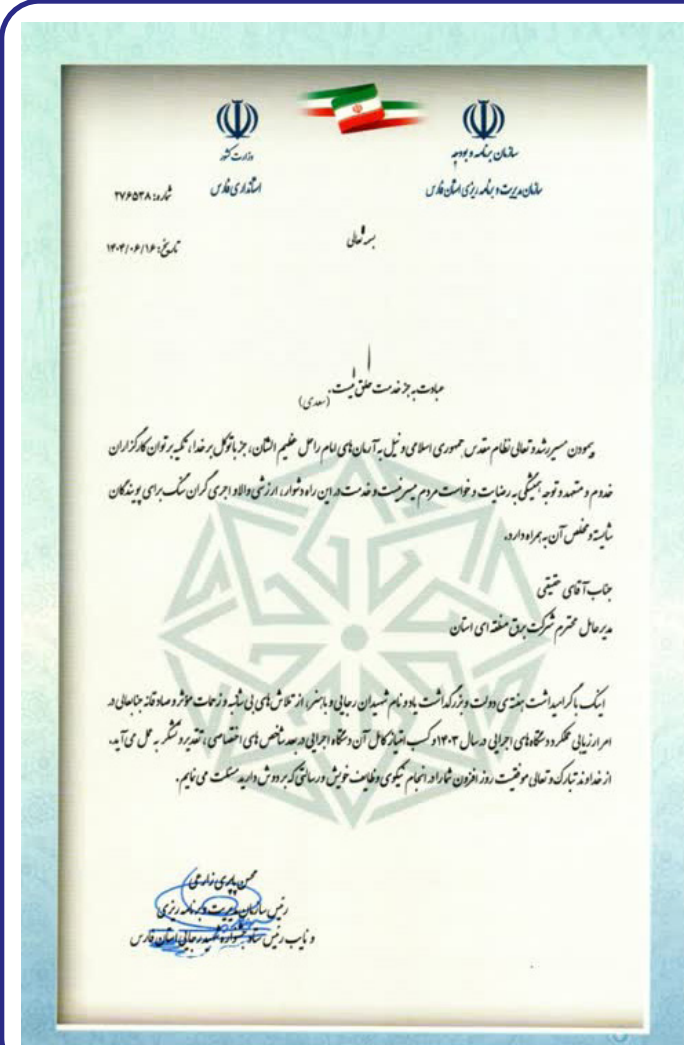 سازمان برنامه و بودجه
سازمان مدیریت و برنامه ریزی استان فارس
وزارت کشور
استانداری فارس
شماره: ۲۷۶۵۳۸
تاریخ: ۱۴۰۴/۰۶/۱۶
بسمه تعالی
عبادت به جز خدمت خلق نیست. (سعدی)
پیمودن مسیر رشد و تعالی نظام مقدس جمهوری اسلامی و نیل به آرمان های امام راحل عظیم الشان، جز با توکل بر خدا، تکیه بر توان کارگزاران
خدوم و متعهد و توجه همیشگی به رضایت و خواست مردم میسر نیست و خدمت در این راه دشوار، ارزشی والا و اجری گران سنگ برای پویندگان
شایسته و مخلص آن به همراه دارد.
جناب آقای حقیقی
مدیر عامل محترم شرکت برق منطقه ای استان
اینک با گرامیداشت هفته ی دولت و بزرگداشت یاد و نام شهیدان رجایی و باهنر، از تلاش های بی شائبه و زحمات مؤثر و صادقانه جنابعالی در
امر ارزیابی عملکرد دستگاه های اجرایی در سال ۱۴۰۳ و کسب امتیاز کامل آن دستگاه اجرایی در بعد شاخص های اختصاصی، تقدیر و تشکر به عمل می آید.
از خداوند تبارک و تعالی موفقیت روز افزون شما را در انجام نیکوی وظایف خویش و رسالتی که بر دوش دارید مسئلت می نمایم.
محسن زارعی
رئیس سازمان مدیریت و برنامه ریزی
و نایب رئیس ستاد جشنواره شهید رجایی استان فارس